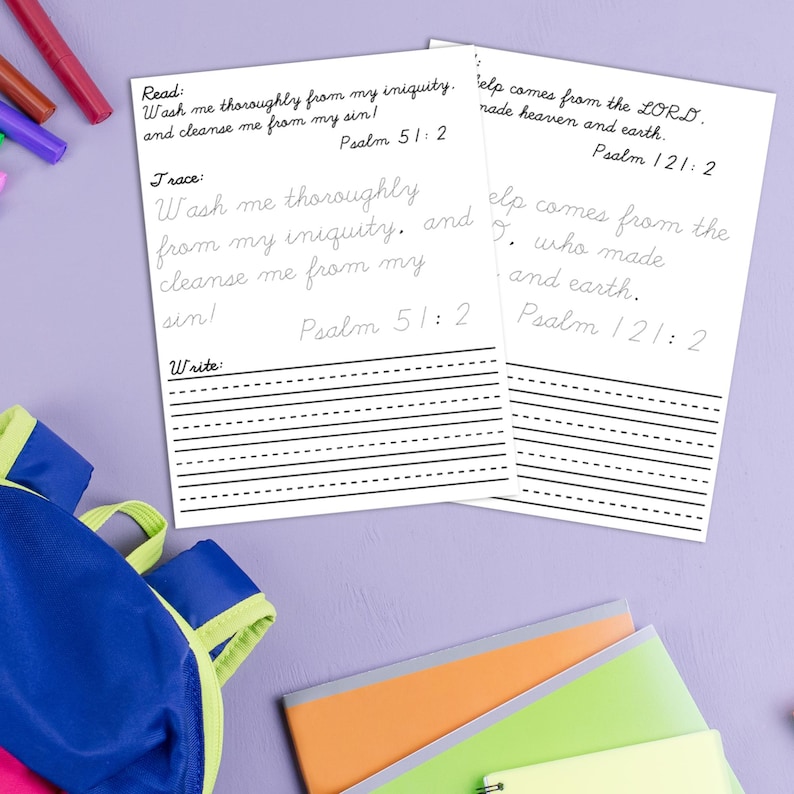 Read:
Wash me thoroughly from my iniquity,
and cleanse me from my sin!
Psalm 51:2
Trace:
Wash me thoroughly
from my iniquity, and
cleanse me from my
sin!
Psalm 51:2
Write:
help comes from the LORD,
made heaven and earth.
Psalm 121:2
elp comes from the
D, who made
and earth.
Psalm 121:2